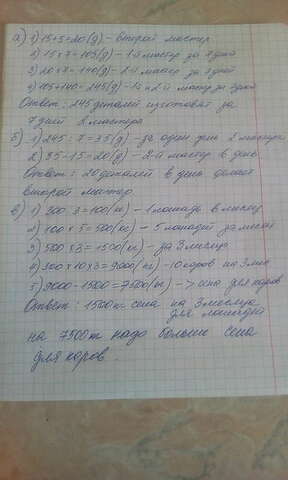 а) 1) 15+5=20(д) – второй мастер
2) 15×7=105(д) – 1-й мастер за 7 дней
3) 20×7=140(д) – 2-й мастер за 7 дней
4) 105+140=245(д) – 1й и 2-й мастер за 7 дней
Ответ: 245 деталей изготовят за
7 дней 2 мастера
б) 1) 245:7=35(д) – за один день 2 мастера
2) 35-15=20(д) – 2-й мастер в день
Ответ: 20 деталей в день делал
второй мастер.
в) 1) 300:3=100(кг) – 1 лошадь в месяц
2) 100×5=500(кг) – 5 лошадей за месяц
3) 500×3=1500(кг) – за 3 месяца
4) 300×10×3=9000(кг) – 10 коров на 3 мес
5) 9000-1500=7500(кг) – > сена для коров
Ответ: 1500 сена на 3 месяца
для лошадей
на 7500 надо больше сена
для коров.